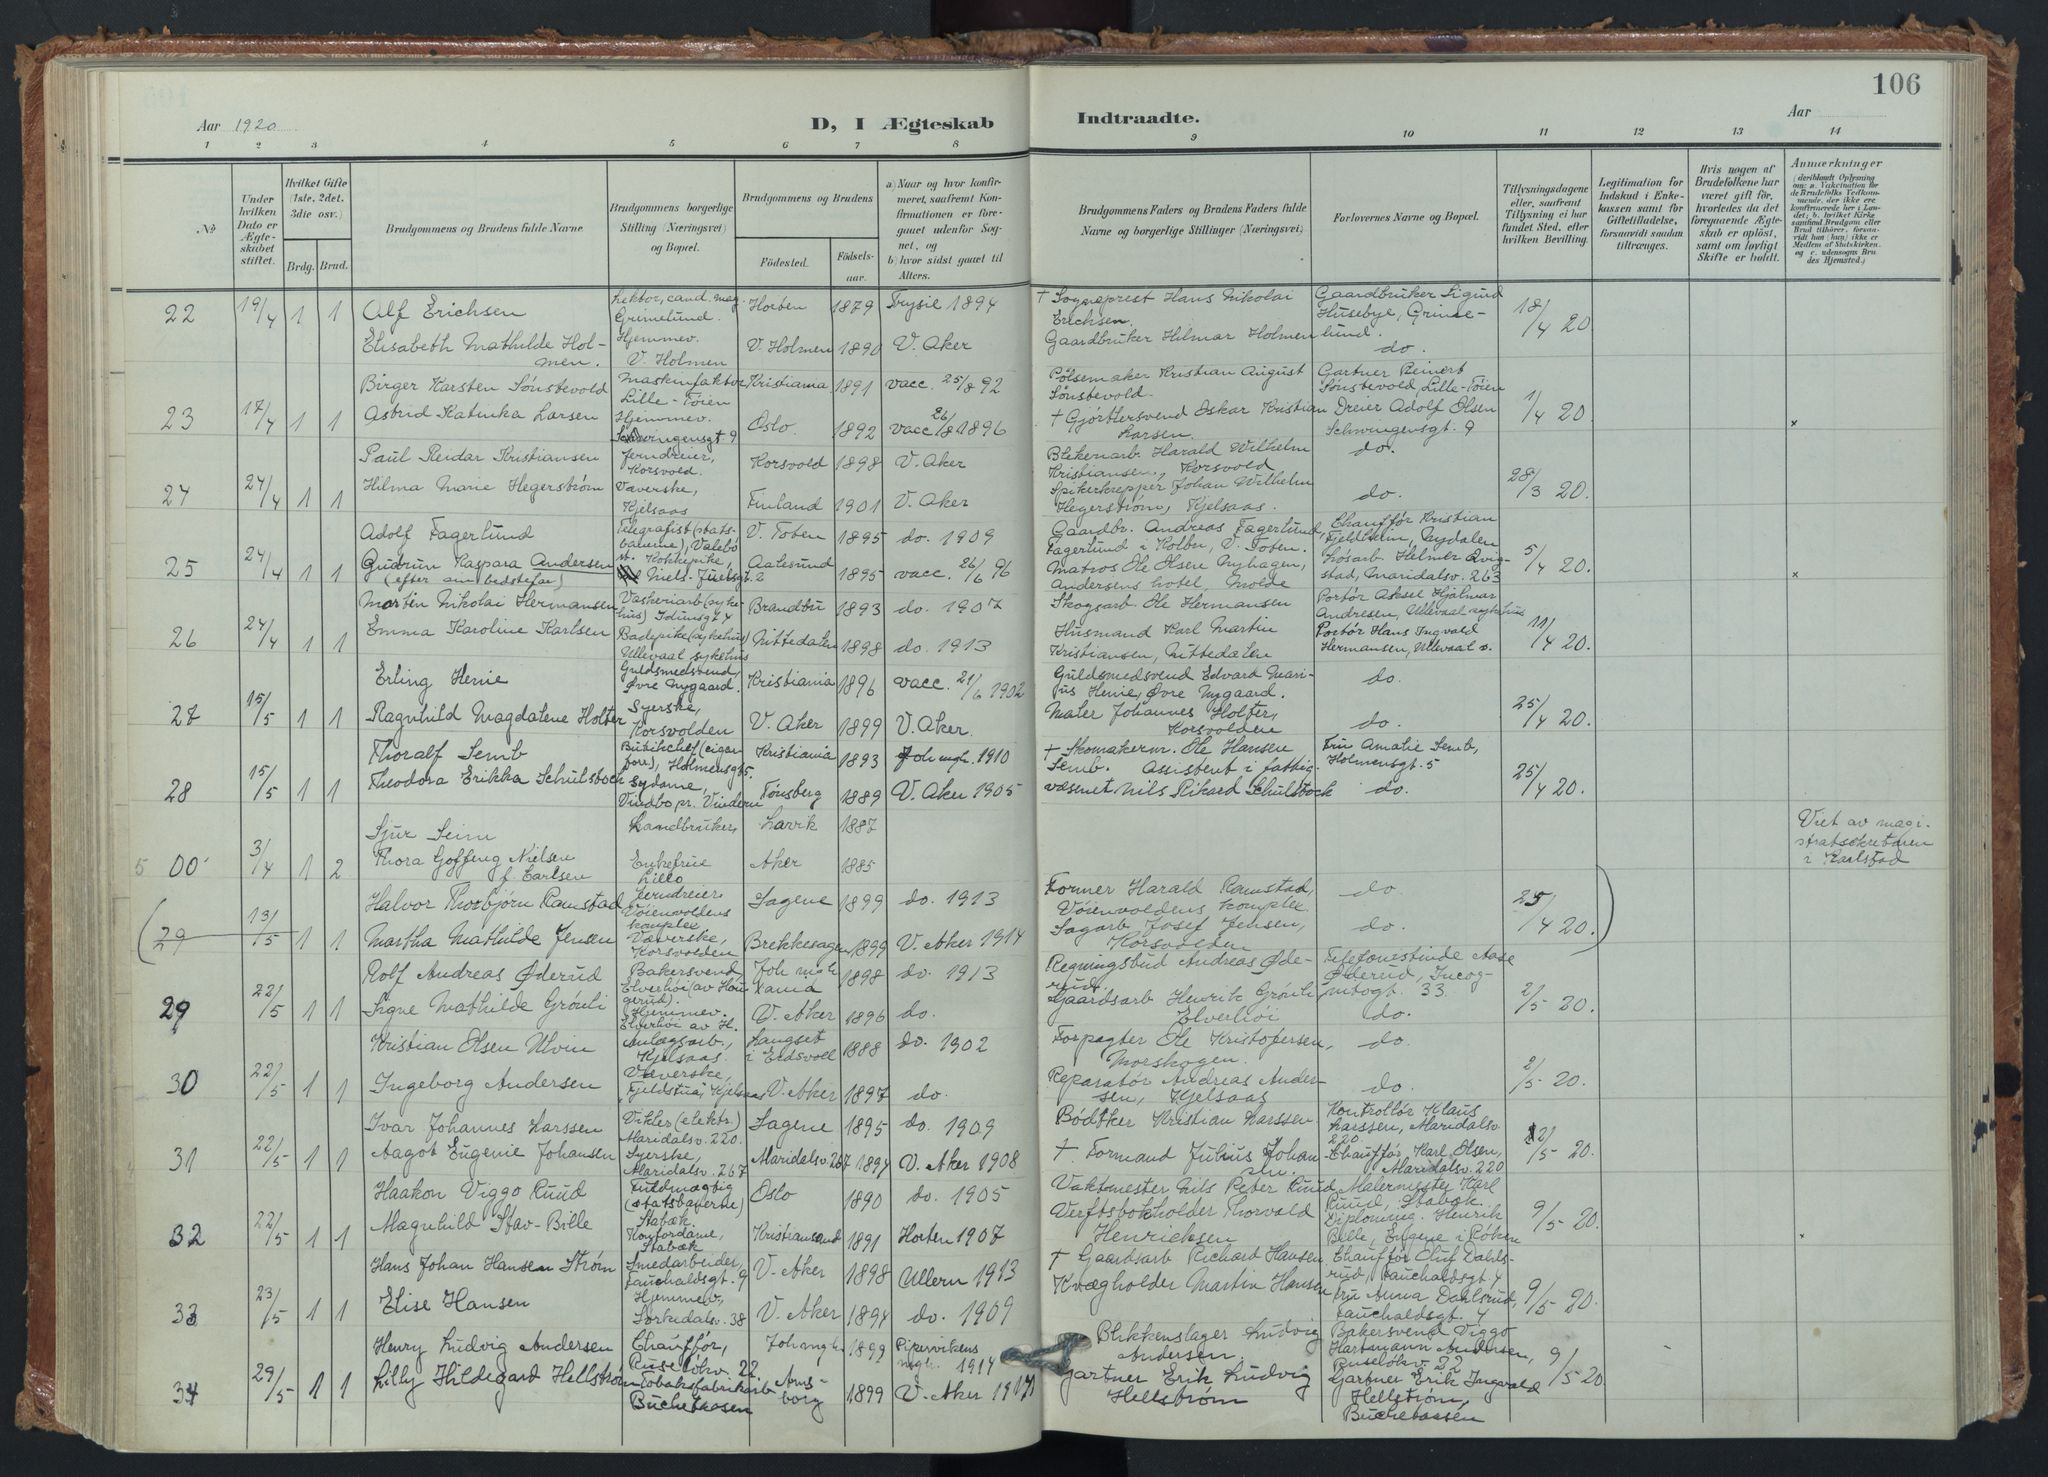 106
Aar 1920
D, I Ægteskab Indtraadte.
Aar
1 2 3 4 5 6 7 8 9 10 11 12 13 14
No
Under hvilken Dato er Ægteskabet stiftet.
Hvilket Gifte (1ste, 2det, 3die osv.)
Brdg. Brud.
Brudgommens og Brudens fulde Navne
Brudgommens borgerlige Stilling (Næringsvei) og Bopæl.
Brudgommens og Brudens
Fødested. Fødselsaar.
a) Naar og hvor konfirmeret, saafremt Konfirmationen er foregaaet udenfor Sognet, og
b) hvor sidst gaaet til Alters.
Brudgommens Faders og Brudens Faders fulde Navne og borgerlige Stillinger (Næringsvei)
Forlovernes Navne og Bopæl.
Tillysningsdagene eller, saafremt Tillysning ei har fundet Sted, efter hvilken Bevilling.
Legitimation for Indskud i Enkekassen samt for Giftetilladelse, forsaavidt saadan tiltrænges.
Hvis nogen af Brudefolkene har været gift før, hvorledes da det foregaaende Ægteskab er opløst, samt om lovligt Skifte er holdt.
Anmærkninger
(deriblandt Oplysning om: a. Vakcination for de Brudefolks Vedkommende, der ikke ere konfirmerede her i Landet; b. hvilket Kirkesamfund Brudgom eller Brud tilhører, forsaavidt han (hun) ikke er Medlem af Statskirken, og c. udensogns Brudes Hjemsted.)
22 19/4 1 1 Alf Erichsen Lektor, cand. mag. Grimelund. Horten 1879 Trysil 1894 † Sogneprest Hans Nikolai Erichsen. Gaardbruker Sigurd Husebye, Grimelund. 18/4 20
Elisabeth Mathilde Holmen. Hjemmev. V. Holmen V. Holmen 1890 V. Aker Gaardbruker Hilmar Holmen do.
23 17/4 1 1 Birger Karsten Sønstevold Maskinfaktor Lille-Tøien Kristiania 1891 vacc. 25/8 92 Pølsemaker Kristian August Sønstevold. Gartner Reinert Sønstevold, Lille-Tøien 1/4 20
Astrid Katinka Larsen Hjemmev. Schwingensgt 9 Oslo. 1892 vacc 26/8 1896 † Gjørtlersvend Oskar Kristian Larsen. Dreier Adolf Olsen Schwingensgt. 9 x
24 24/4 1 1 Paul Reidar Kristiansen Jerndreier, Korsvold. Korsvold 1898 V. Aker Blekeriarb Harald Wilhelm Kristiansen, Korsvold do. 28/3 20.
Hilma Marie Hegerstrøm Væverske, Kjelsaas Finland 1901 V. Aker Johan Wilhelm Hegerstrøm, Kjelsaas. do.
25 24/4 1 1 Adolf Fagerlund Telegrafist (statsbanerne), V. Toten 1895 do. 1909 Gaardbr. Andreas Fagerlund, Fagerlund i Kolbu, V. Toten. Chauffør Kristian Fjeldheim, Nydalen 5/4 20.
Gudrun Kaspara Andersen (efter sin bedstefar) Kokkepike, Niels Juelsgt 2 Aalesund 1895 vacc. 26/6 96 Matros Ole Olsen Nyhagen, Andersens hotel, Molde Løsarb. Helmer Qvigstad, Maridalsv. 263 x
26 24/4 1 1 Morten Nikolai Hermansen Vaskeriarb (sykehus) Idunsgt 4 Brandbu 1893 do. 1907 Skogsarb. Ole Hermansen Portør Aksel Hjalmar Andresen, Ullevaal sykehus 11/4 20.
Emma Karoline Karlsen Badepike (sykehus) Ullevaal sykehus Nittedalen 1898 do. 1913 Husmand Karl Martin Kristiansen, Nittedalen Portør Hans Ingvald Hermansen, Ullevaal s.
27 15/5 1 1 Erling Henie Guldsmedsvend, Øvre Nygaard. Kristiania 1896 vacc. 21/6 1902 Guldsmedsvend Edvard Marius Henie, Øvre Nygaard. do. 25/4 20.
Ragnhild Magdalene Holter Syerske, Korsvolden V. Aker 1899 V. Aker. Maler Johannes Holter, Korsvolden do.
28 15/5 1 1 Thoralf Semb Butikchef (cigarforr), Holmensgt 5. Kristiania 1893 Joh mgh. 1910 † Skomakerm. Ole Hansen Semb. Fru Amalie Semb, Holmensgt. 5 25/4 20.
Theodora Erikka Schulstock Sydame, Vindbo pr. Vinderen Tønsberg 1889 V. Aker 1905 Assistent i fattigvæsenet Nils Rikard Schulstock do.
5 00 3/4 1 2 Sjur Seim Landbruker, Larvik 1887 Viet av magistratsekretæren i Karlstad
Thora Goffeng Nielsen f. Carlsen Enkefrue Lillo Aker 1885
(29 13/5 1 1 Halvor Thorbjørn Ramstad Jerndreier Vøienvoldens komplex Sagene 1899 do. 1913 Former Harald Ramstad, Vøienvoldens komplex. do 25/4 20.)
Martha Mathilde Jensen Væverske, Korsvolden Brekkesagen 1899 V. Aker 1914 Sagarb Josef Jensen, Korsvolden do.
29 22/5 1 1 Rolf Andreas Øderud Bakersvend Elverhøi (av Haugerud). Joh mgh Xania 1898 do. 1913 Regningsbud Andreas Øderud. Telefonistinde Aase Øderud, Incognitogt. 33. 2/5 20.
Signe Mathilde Grönli Hjemmev. Elverhöi av H. V. Aker 1896 do. Gaardsarb Henrik Grönli Elverhöi do.
30 22/5 1 1 Kristian Olsen Ulvin Anlægsarb., Kjelsaas. Langset i Eidsvoll 1888 do. 1902 Forpagter Ole Kristofersen, Morskogen. do. 2/5 20.
Ingeborg Andersen Væverske, "Fjeldstua", Kjelsaas V. Aker 1897 do. Reparatør Andreas Andersen, Kjelsaas do.
31 22/5 1 1 Ivar Johannes Larssen Vikler (elektr.) Maridalsv. 220. Sagene 1895 do. 1909 Bødtker Kristian Larssen Kontrollør Klaus Larssen, Maridalsv 220. 2/5 20.
Aagot Eugenie Johansen Syerske, Maridalsv. 267 Maridalsv. 267 1894 V. Aker 1908 † Formand Julius Johansen. Chauffør Karl Olsen, Maridalsv. 220
32 22/5 1 1 Haakon Viggo Ruud Fuldmægtig (statsbanerne) Stabæk Oslo 1890 do. 1905 Vaktmester Nils Peter Ruud Malermester Karl Ruud, Stabæk. 9/5 20.
Magnhild Stav-Bille Kontordame, Stabæk Kristiansand 1891 Horten 1907 Verftsbokholder Thorvald Henricksen Diploming. Henrik Bille, i Røken x
33 23/5 1 1 Hans Johan Hansen Strøm Smedarbeider, Fauchaldsgt. 9 V. Aker 1898 Ullern 1913 † Gaardsarb Richard Hansen Chauffør Oluf Dahlsrud, Fauchaldsgt. 4 9/5 20.
Elise Hansen Hjemmev, Sørkedalsv. 38 V. Aker 1894 do. 1909 Kvægholder Martin Hansen Fru Anna Dahlsrud, Fauchaldsgt. 4
34 29/5 1 1 Henry Ludvig Andersen Chauffør, Ruseløkv. 22 Joh mgh. 1899 Pipervikens mgh. 1914 Blikkenslager Ludvig Andersen. Bakersvend Viggo Hartmann Andersen, Ruseløkv 22 9/5 20
Lilly Hildegard Hellstrøm Tobaksfabrikarb Armsborg 1899 V. Aker 1917 Gartner Erik Ludvig Hellstrøm Gartner Erik Ingvald Hellstrøm,